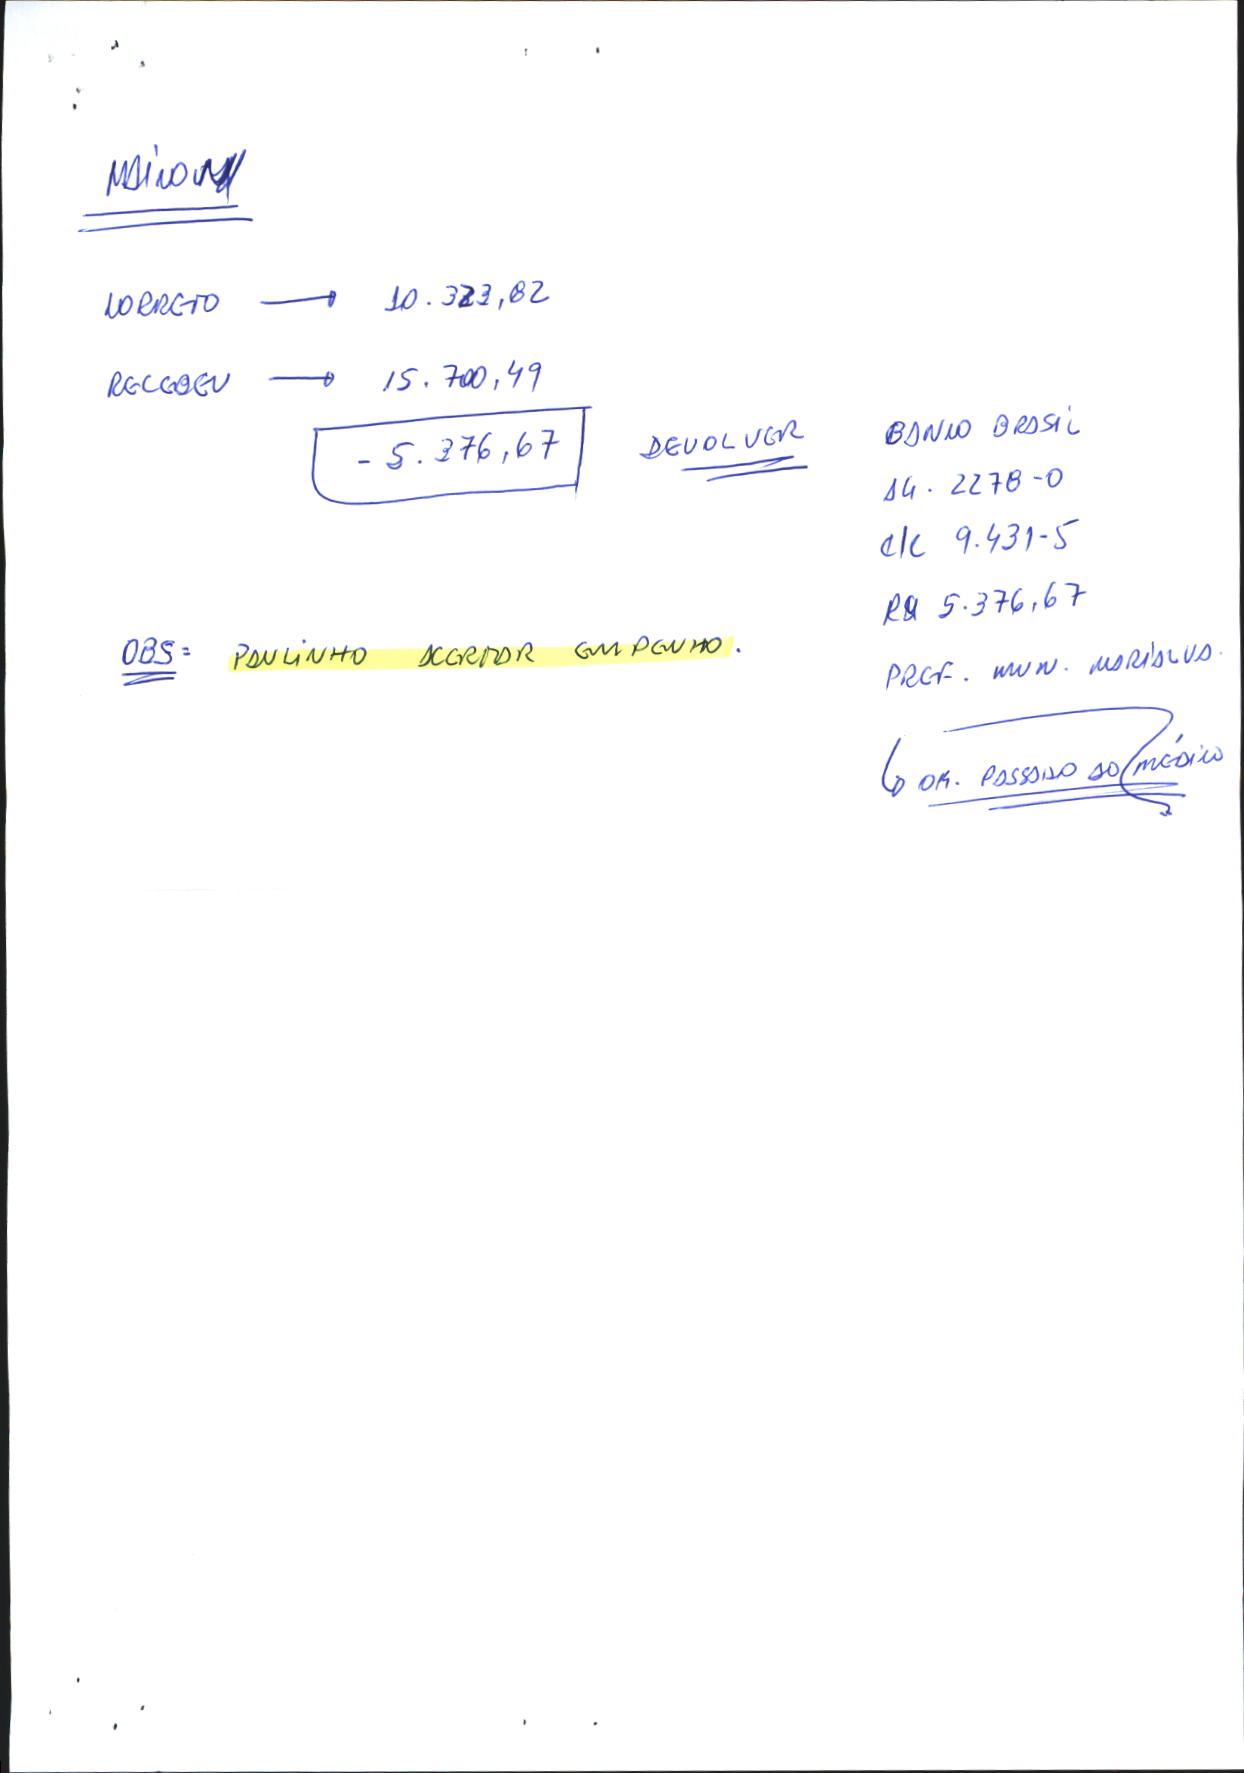 MAICON
CORRETO → 10.323,82
RECEBEU → 15.700,49
- 5.376,67 DEVOLVER
BANCO BRASIL
AG. 2278-0
C/C 9.431-5
R$ 5.376,67
PREF. MUN. MARIALVA.
OBS: PAULINHO ACERTAR EMPENHO.
↳ OK. PASSADO AO MÉDICO